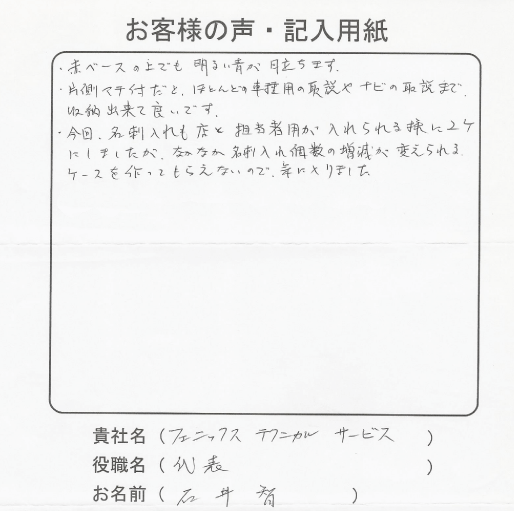 お客様の声・記入用紙
・赤ベースの上でも明るい青が目立ちます。
・片側マチ付だと、ほとんどの車種用の取説やナビの取説まで、
収納出来て良いです。
・今回、名刺入れも店と担当者用が入れられる様に2ケ
にしましたが、なかなか名刺入れ個数の増減が変えられる
ケースを作ってもらえないので、気に入りました
貴社名（フェニックス テクニカル サービス）
役職名（代表）
お名前（石井 智）